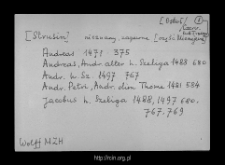 [Strusin]
Andreas 1471 · 375
Andreas, Andr. alter h. Szeliga 1488 680
Andr. h. Sz. 1497 767
Andr. Petri, Andr. olim Thome 1481 584
Jacobus h. Szeliga 1488, 1497 680.
767. 769
Wolff MZH
http://rcin.org.pl